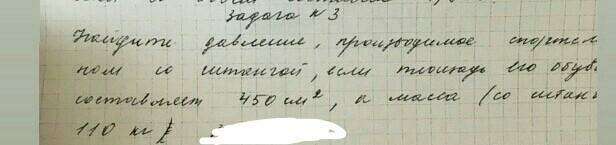 Задача № 3
Найдите давление, производимое спортсме
ном со штангой, если площадь его обуви
составляет 450 см², а масса (со штан
110 кг)